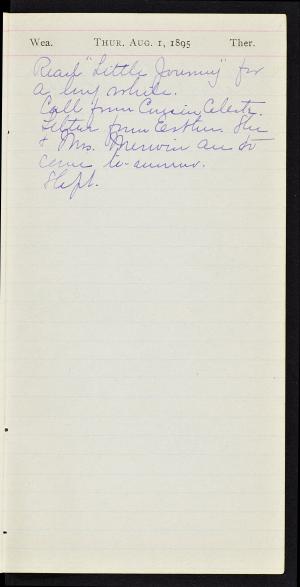 Wea. THUR. AUG. 1, 1895 Ther.
Read "Little Journey" for
a long while.
Call from Cousin Celeste.
Letter from Esther. She
& Mrs. Merwin are to
come to-morrow.
Slept.